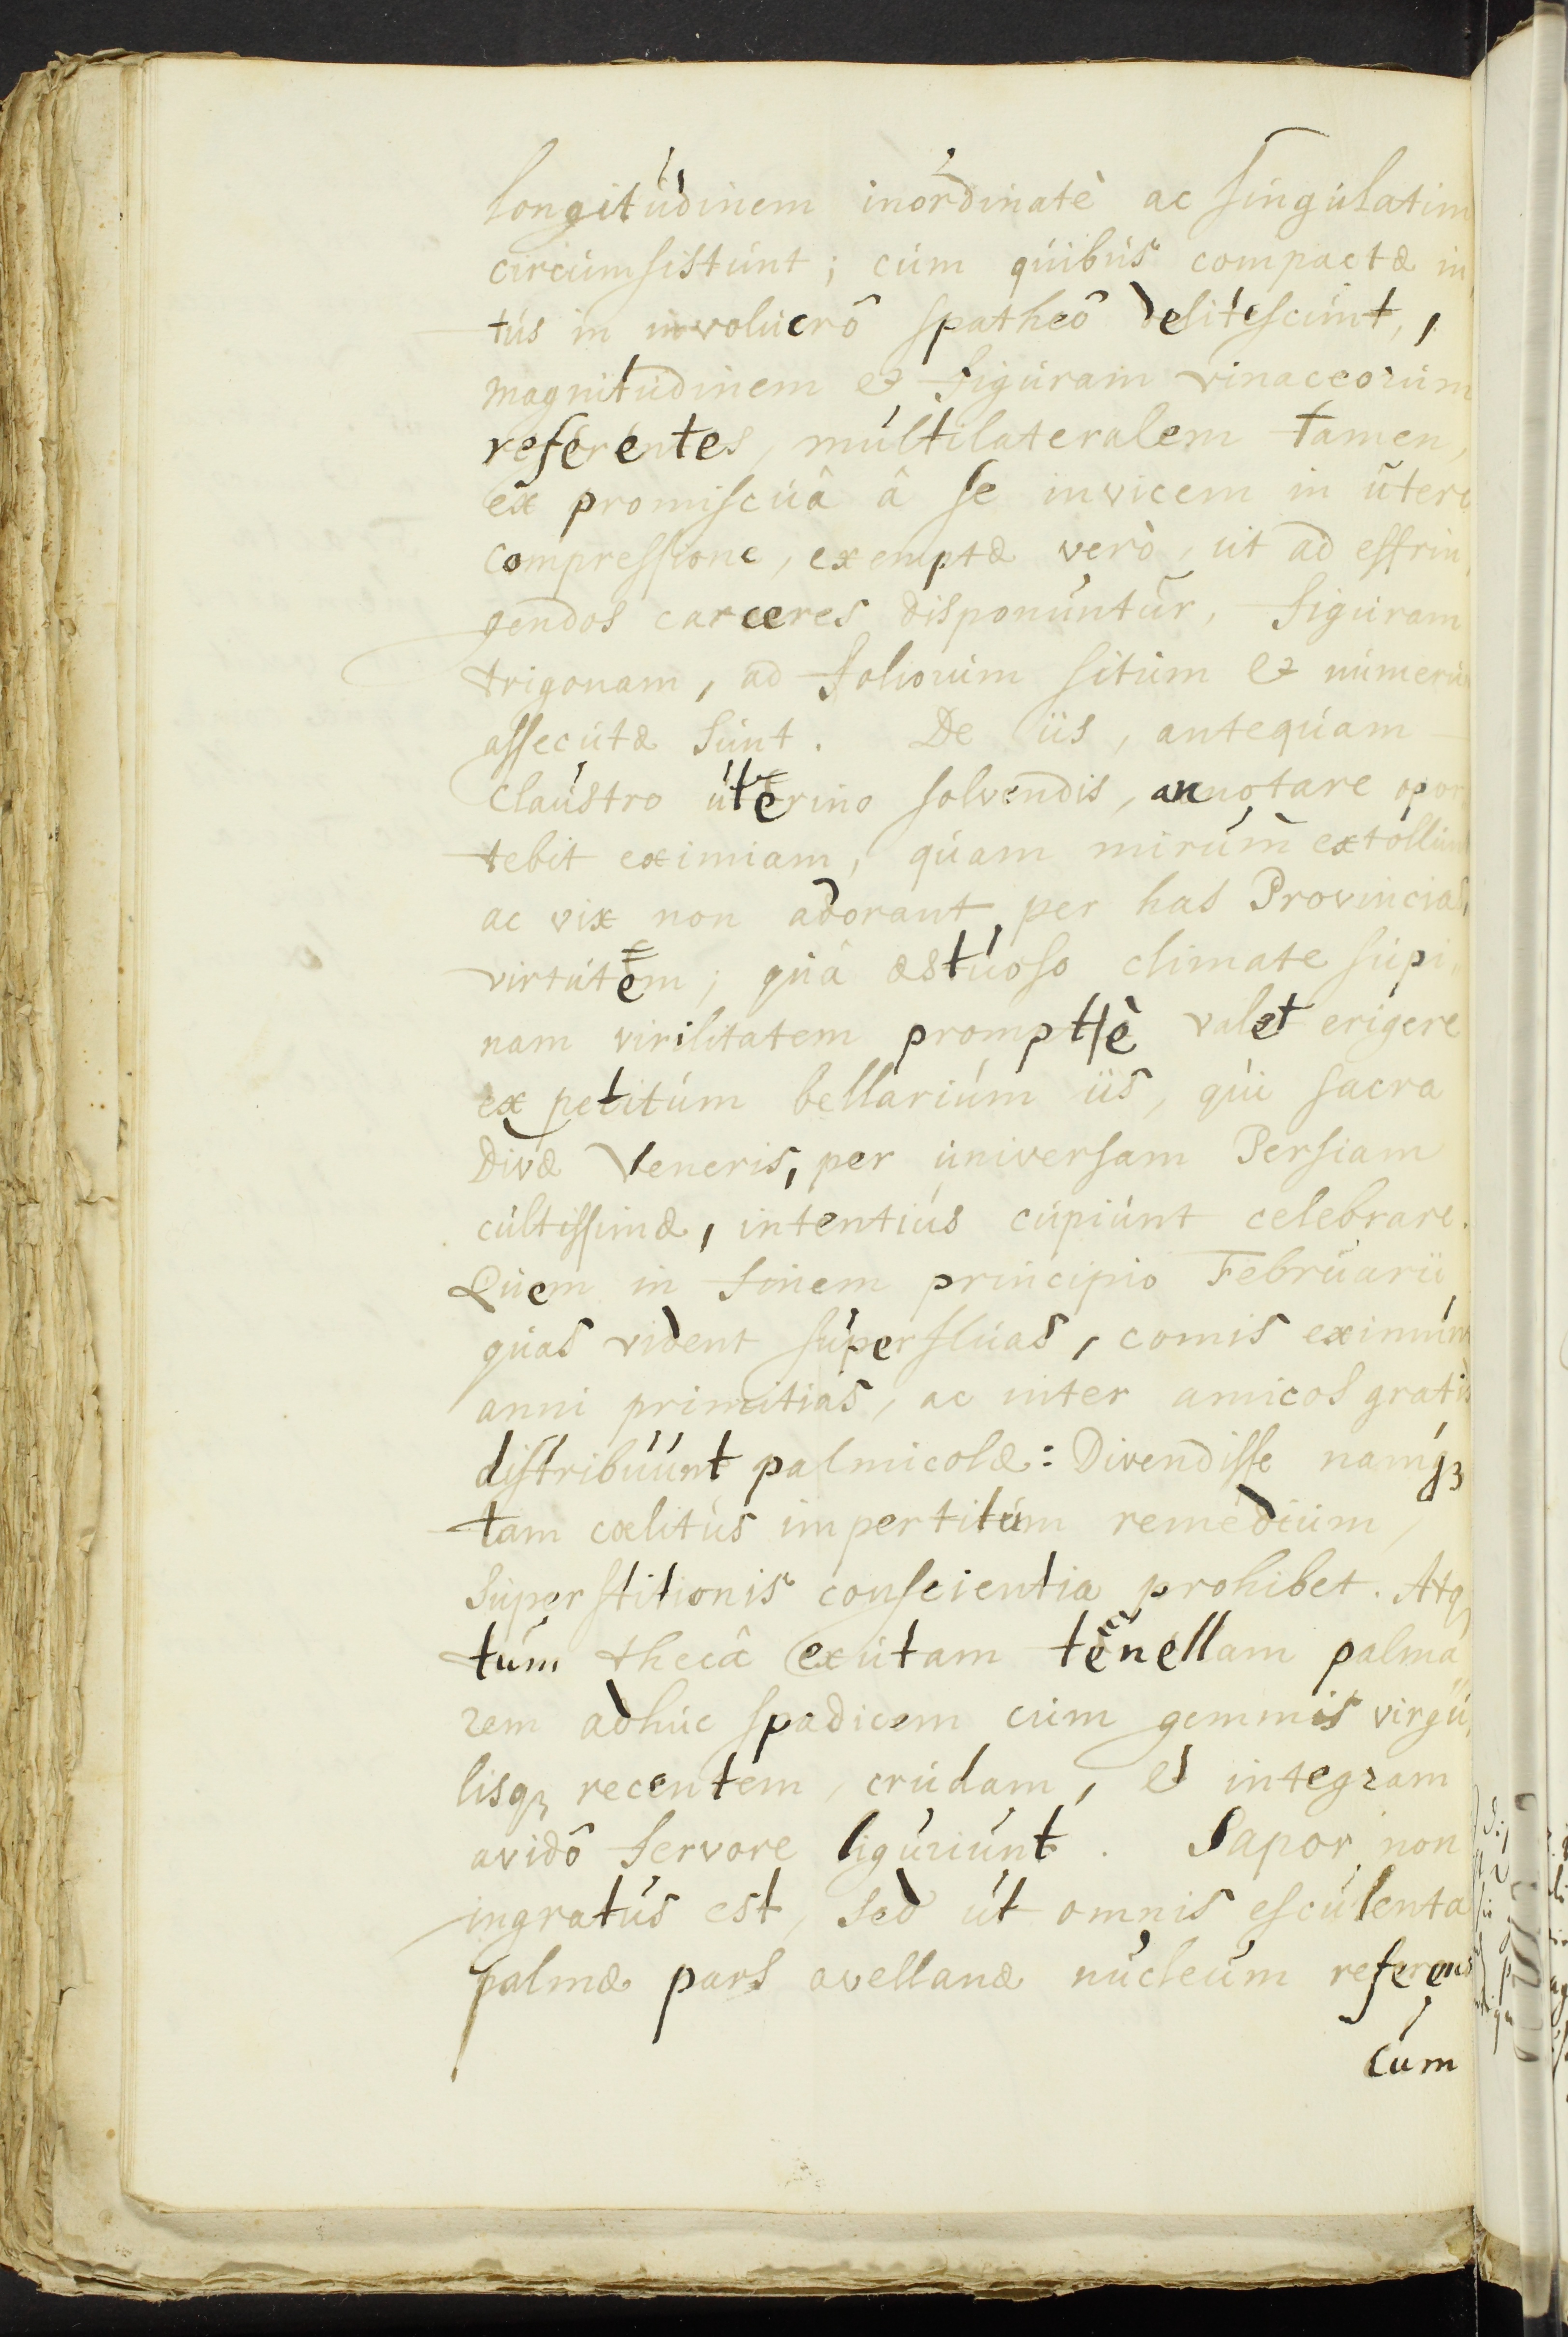 longitudinem inordinatè ac singulatim
circumsistunt; cum quibus compactæ in
tus in involucrô spatheô delitescunt,
magnitudinem & figuram vinaceorum
referentes, multilateralem tamen,
ex promiscuâ â se invicem in utero
compressione, exemptæ verò, ut ad effrin
gendos carceres disponuntur, figuram
trigonam, ad foliorum situm & numerum
assecutæ sunt. De iis, antequam
claustro uterino solvendis, annotare opor
tebit eximiam, quam mirum extollunt
ac vix non adorant per has Provincias,
virtutem; quâ æstuoso climate supi
nam virilitatem promptè valet erigere
expetitum bellarium iis, qui sacra
Divæ Veneris, per universam Persiam
cultissimæ, intentius cupiunt celebrare.
Quem in finem principio Februarii
quas vident superfluas, comis eximunt
anni primitias, ac inter amicos gratis
distribuunt palmicolæ: Divendisse namq3
tam cælitus impertitum remedium,
Superstitionis conscientia prohibet. Atq3
tum thecâ exutam tenellam palma
rem adhuc spadicem cum gemmis virgu
lisq3 recentem, crudam, & integram
avidô fervore liguriunt. Sapor non
ingratus est, sed ut omnis esculenta
palmæ pars avellanæ nucleum referens
cum